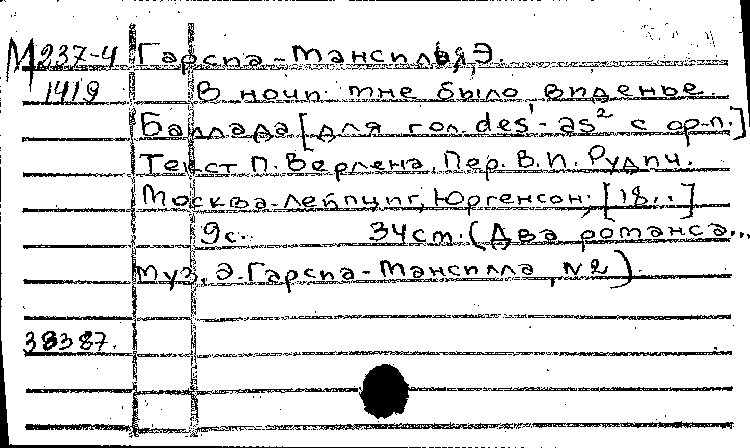 М 237-4 Гарсиа-Мансилья, Э.
1419 В ночи мне было виденье.
Баллада [для гол. des¹-as² с ор.п.]
Текст П. Верлена. Пер. В.П. Рудич.
Москва-Лейпциг, Юргенсон, [18..]
9с. 34см. (Два романса...
муз. Э. Гарсиа-Мансилла, №2).
38387.